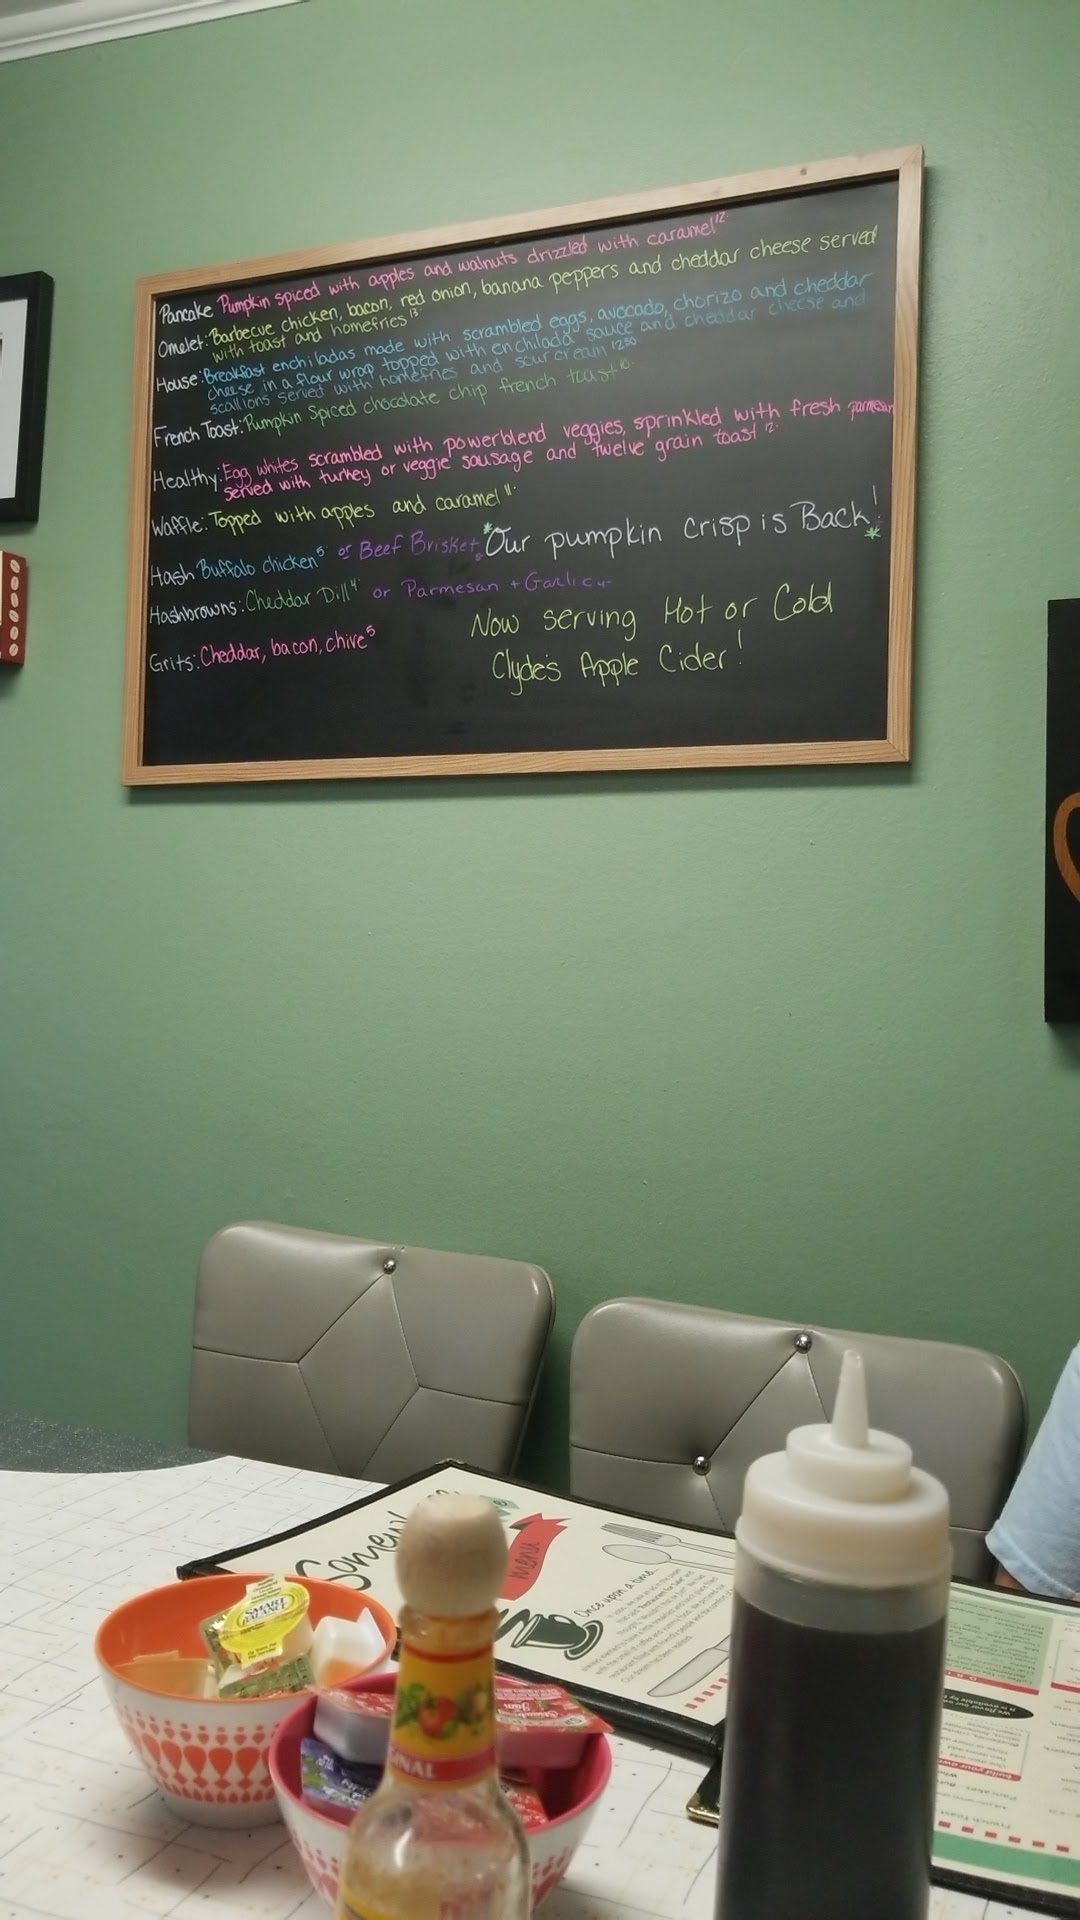 Pancake Pumpkin spiced with apples and walnuts drizzled with caramel 12.
Omelet: Barbecue chicken, bacon, red onion, banana peppers and cheddar cheese served
with toast and homefries 13.
House: Breakfast enchiladas made with scrambled eggs, avocado, chorizo and cheddar
cheese in a flour wrap topped with enchilada sauce and cheddar cheese and
scallions served with homefries and sour cream 1250
French Toast: Pumpkin Spiced chocolate chip french toast 10.
Healthy: Egg whites scrambled with powerblend veggies, sprinkled with fresh parmesan
served with turkey or veggie sausage and twelve grain toast 12.
Waffle: Topped with apples and caramel 11.
Hash Buffalo chicken 5. or Beef Brisket
*Our pumpkin crisp is Back! *
Hashbrowns: Cheddar Dill 4. or Parmesan + Garlic 4-
Now serving Hot or Cold
Clyde's Apple Cider!
Grits: Cheddar, bacon, chive 5
menu
Once upon a time...
SMART
BALANCE
INAL